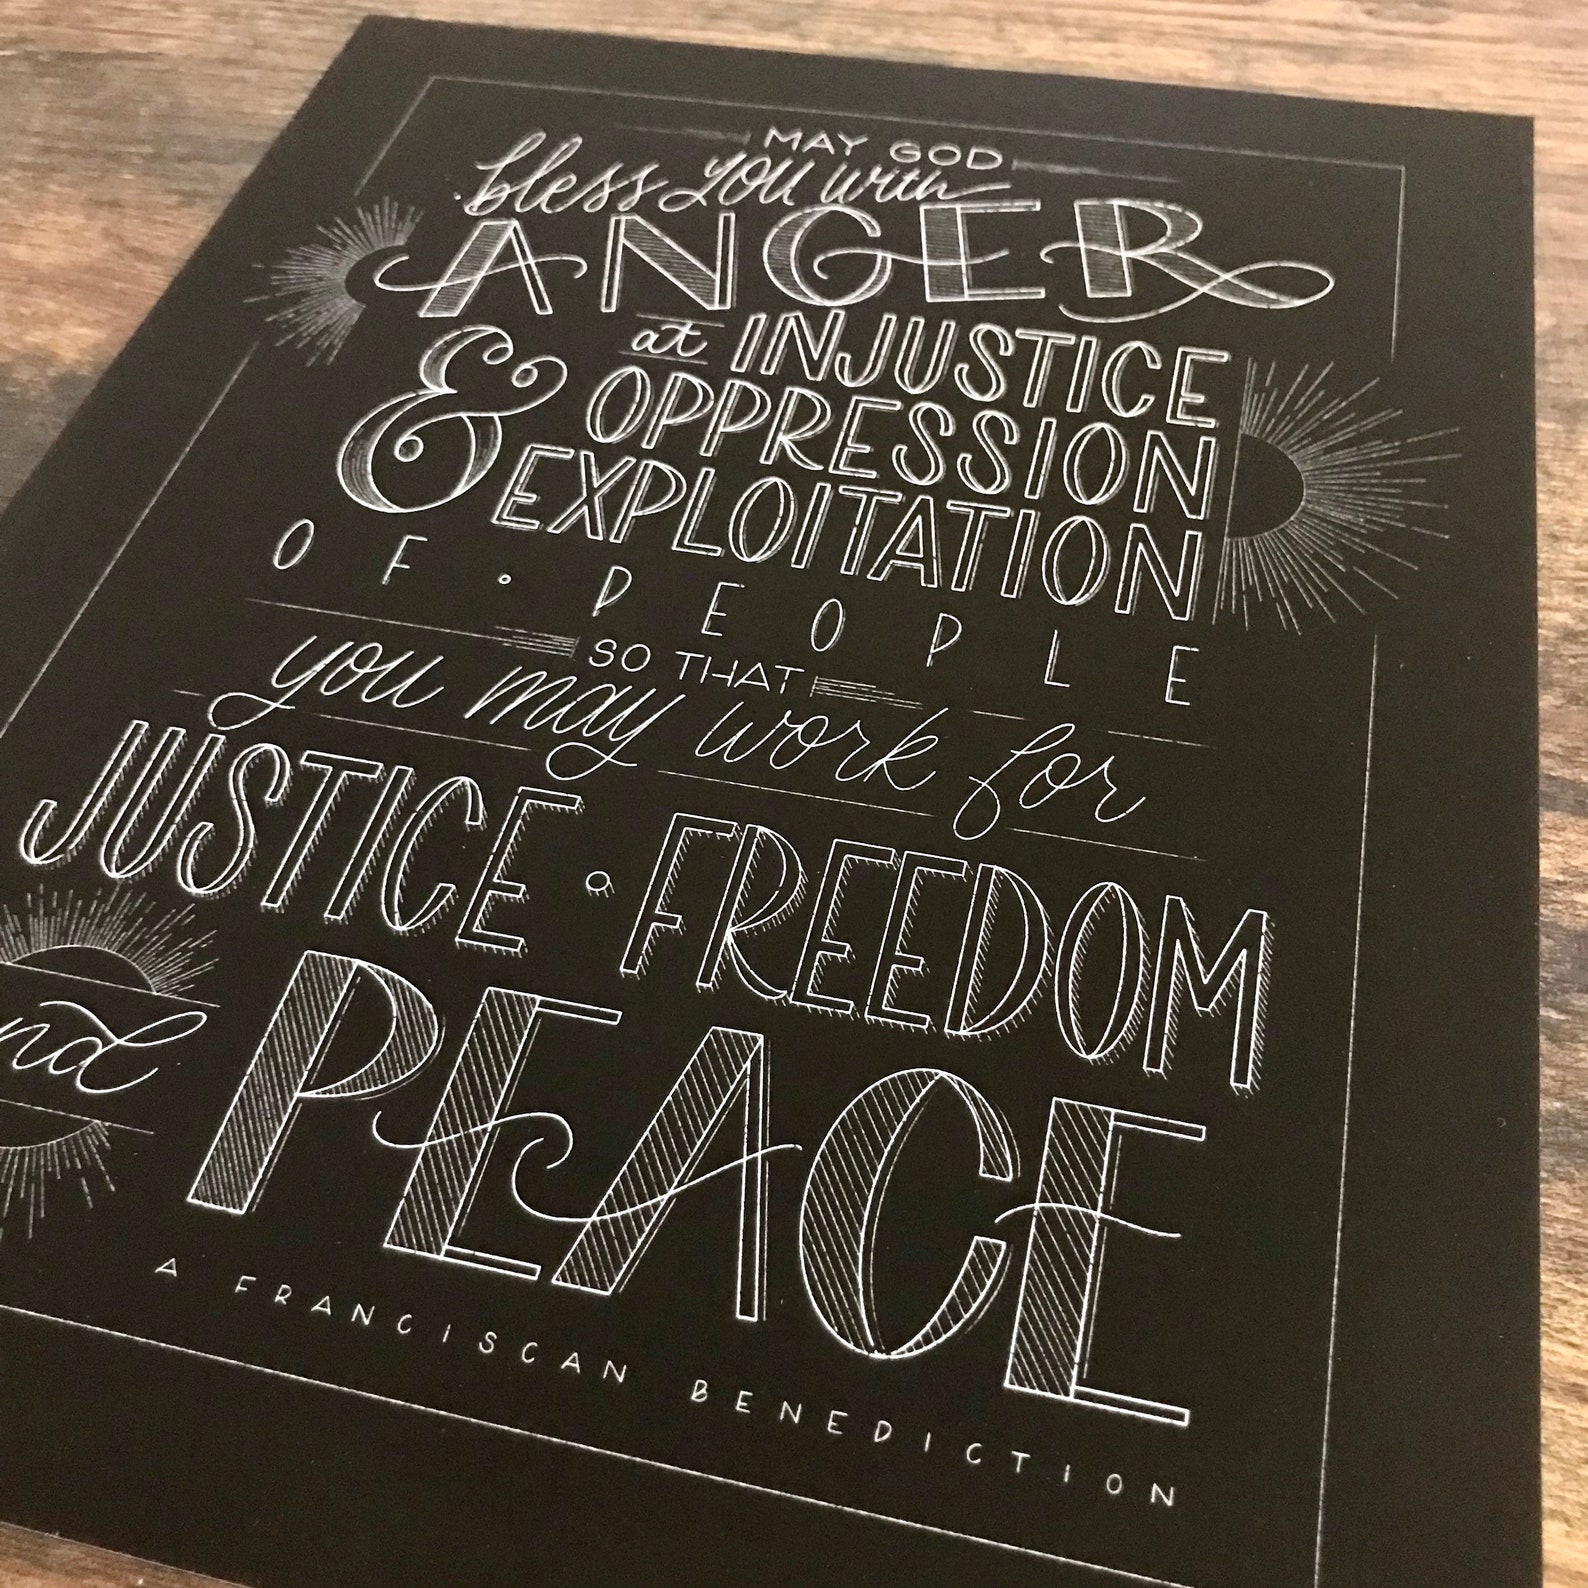 MAY GOD
bless you with
ANGER
at INJUSTICE
OPPRESSION
& EXPLOITATION
OF • PEOPLE
SO THAT
you may work for
JUSTICE • FREEDOM
PEACE
A FRANCISCAN BENEDICTION